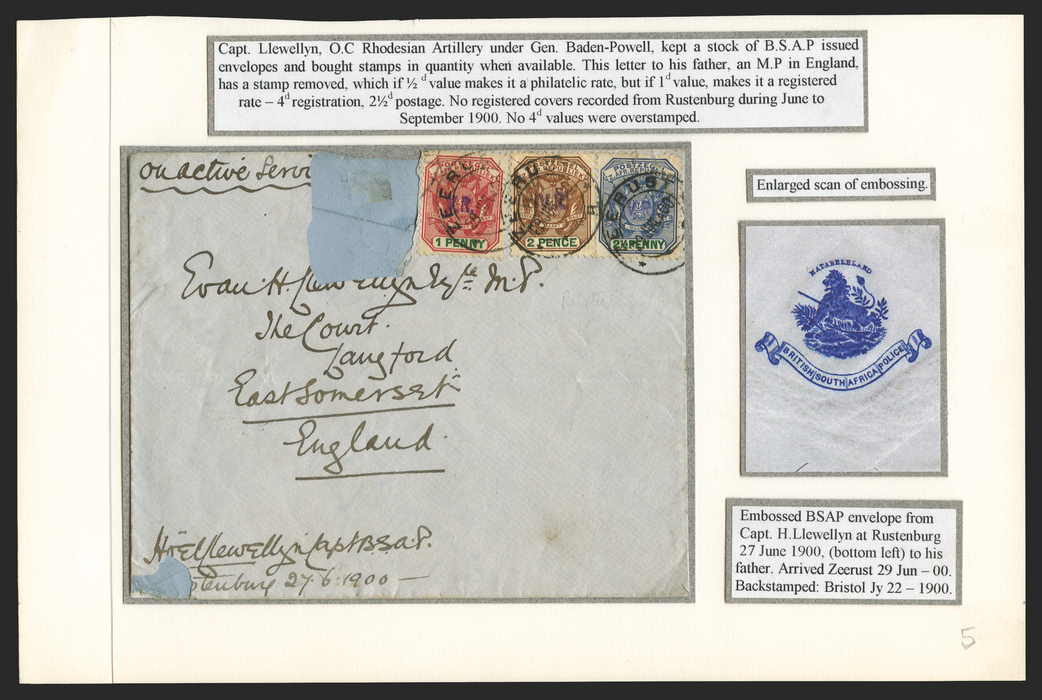 Capt. Llewellyn, O.C Rhodesian Artillery under Gen. Baden-Powell, kept a stock of B.S.A.P issued
envelopes and bought stamps in quantity when available. This letter to his father, an M.P in England,
has a stamp removed, which if ½ d value makes it a philatelic rate, but if 1d value, makes it a registered
rate – 4d registration, 2½d postage. No registered covers recorded from Rustenburg during June to
September 1900. No 4d values were overstamped.
On active Servi
POSTZEGEL
V.R.
1 PENNY
POSTZEGEL
V.R.
2 PENCE
POSTZEGEL
2½ PENNY
ZEERUST
Evan H Llewellyn Esqre M.P.
The Court.
Langford
East Somerset
England
Hoel Llewellyn Capt B.S.A.P.
stenburg 27.6.1900 —
Enlarged scan of embossing.
MATABELELAND
BRITISH SOUTH AFRICA POLICE
Embossed BSAP envelope from
Capt. H.Llewellyn at Rustenburg
27 June 1900, (bottom left) to his
father. Arrived Zeerust 29 Jun – 00.
Backstamped: Bristol Jy 22 – 1900.
5